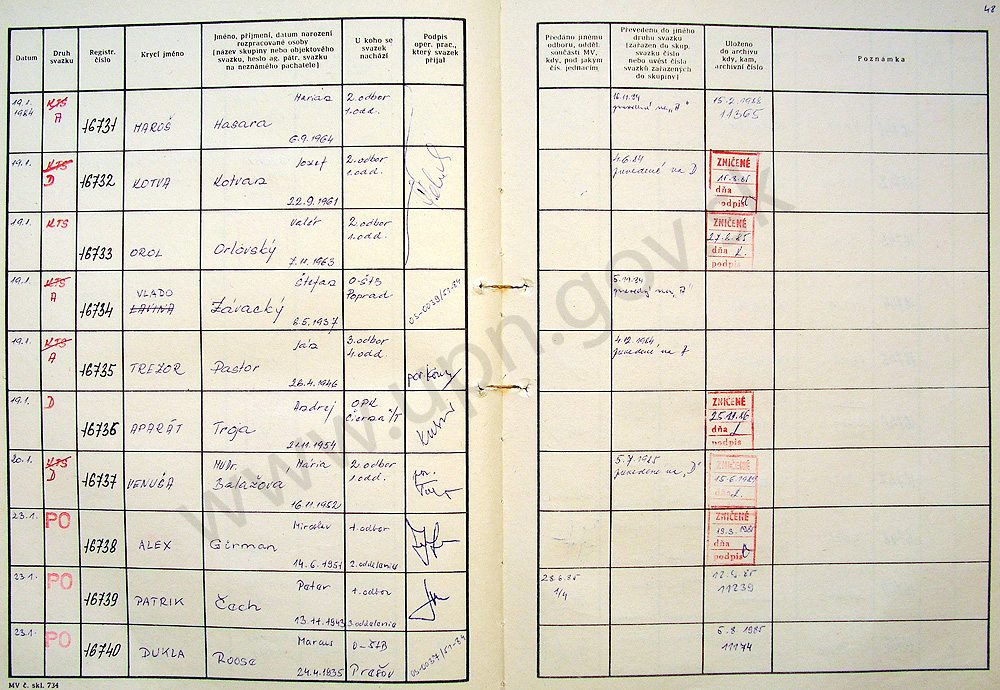 48
Datum
Druh
svazku
Registr.
číslo
Krycí jméno
Jméno, příjmení, datum narození
rozpracované osoby
(název skupiny nebo objektového
svazku, heslo ag. pátr. svazku
na neznámého pachatele)
U koho se
svazek
nachází
Podpis
oper. prac.,
který svazek
přijal
Předáno jinému
odboru, odděl.
součásti MV,
kdy, pod jakým
čís. jednacím
Převedeno do jiného
druhu svazku
(zařazen do skup.
svazku číslo
nebo uvést čísla
svazků zařazených
do skupiny)
Uloženo
do archivu
kdy, kam,
archivní číslo
Poznámka
19.1.
1984
KTS
A
16731
MAROŠ
Marian
Hasara
6.9.1964
2. odbor
1. odd.
16.11.84
15.2.1988
11365
19.1.
KTS
D
16732
KOTVA
Jozef
Kotvan
22.9.1961
2. odbor
1. odd.
4.6.84
prevedené na D
ZNIČENÉ
dňa
podpis
19.1.
KTS
16733
OROL
Valér
Orlovský
7.11.1963
2. odbor
1. odd.
ZNIČENÉ
27.2.85
dňa
podpis
19.1.
KTS
A
16734
VLADO
LAVÍNA
Štefan
Závacký
2.5.1937
O-ŠtB
Poprad
OS-0039/51-84
5.11.84
19.1.
KTS
A
16735
TREZOR
Ján
Pastor
26.4.1946
3. odbor
4. odd.
4.12.1984
19.1.
D
16736
APARÁT
Andrej
Troja
21.11.1954
OPK
Čierna n/T
ZNIČENÉ
25.11.86
dňa
podpis
20.1.
KTS
D
16737
VENUŠA
MUDr. Mária
Balažová
16.11.1952
2. odbor
1. odd.
5.7.1985
prevedene na „D"
ZNIČENÉ
dňa
23.1.
PO
16738
ALEX
Miroslav
Girman
14.6.1951
1. odbor
2. oddelenie
ZNIČENÉ
dňa
podpis
23.1.
PO
16739
PATRIK
Peter
Čech
13.11.1943
1. odbor
3. oddelenie
28.6.85
1/4
11239
23.1.
PO
16740
DUKLA
Marcus
Roose
24.4.1935
O-ŠtB
Prešov
OS-0037/51-84
5.8.1985
11174
MV č. skl. 734
www.upn.gov.sk